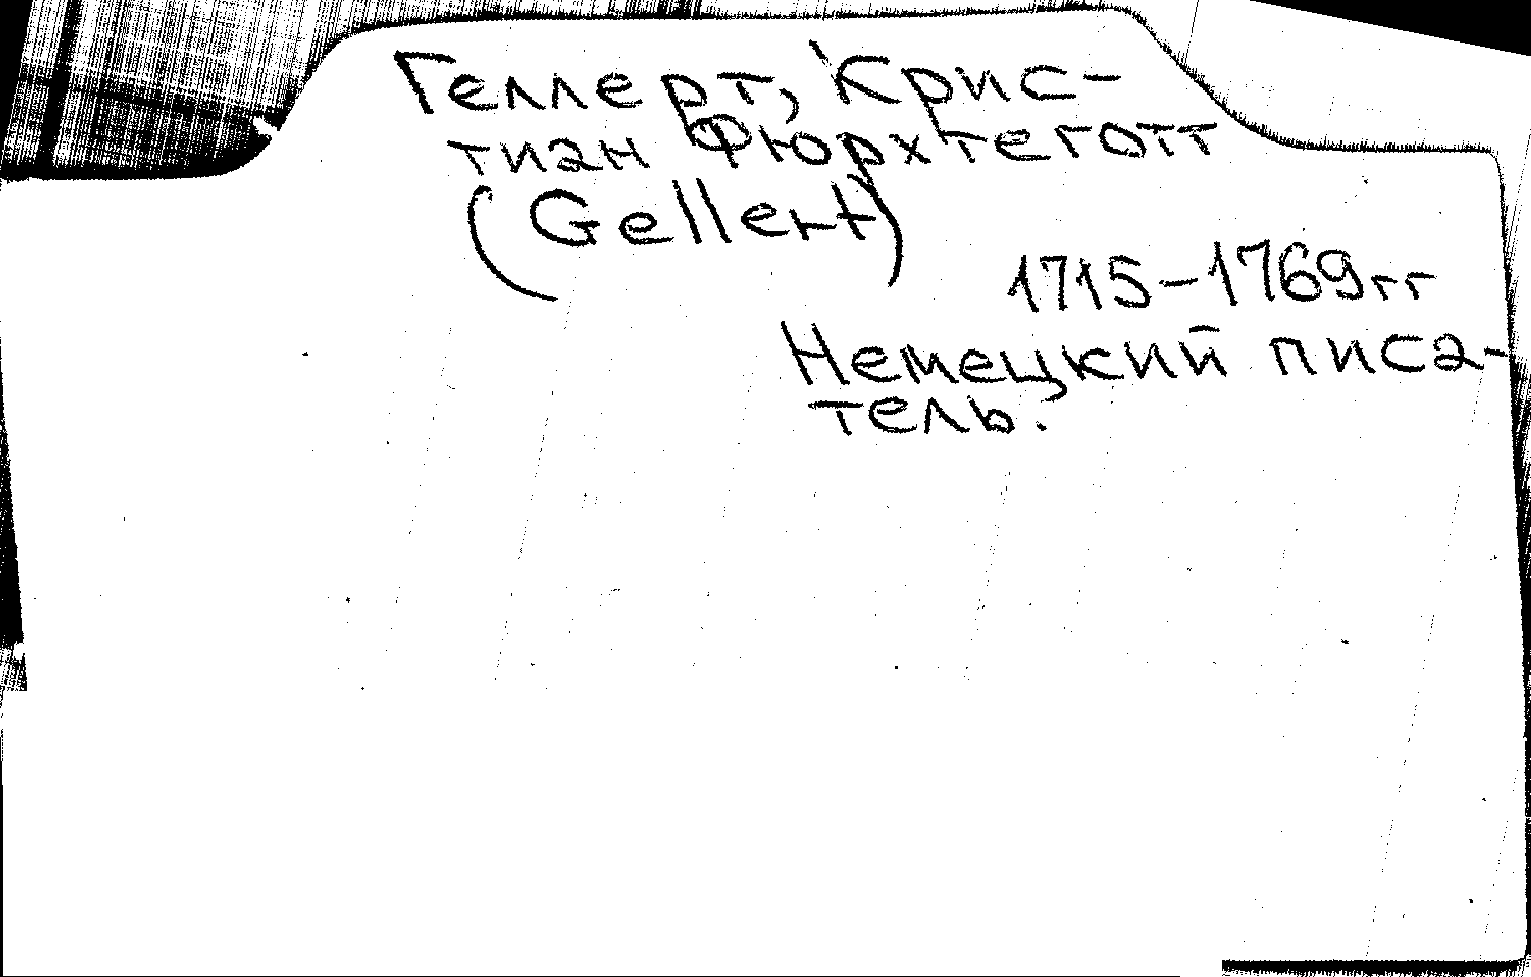 Геллерт, Крис-
тиан Фюрхтеготт
(Gellert)
1715-1769гг
Немецкий писа-
тель.